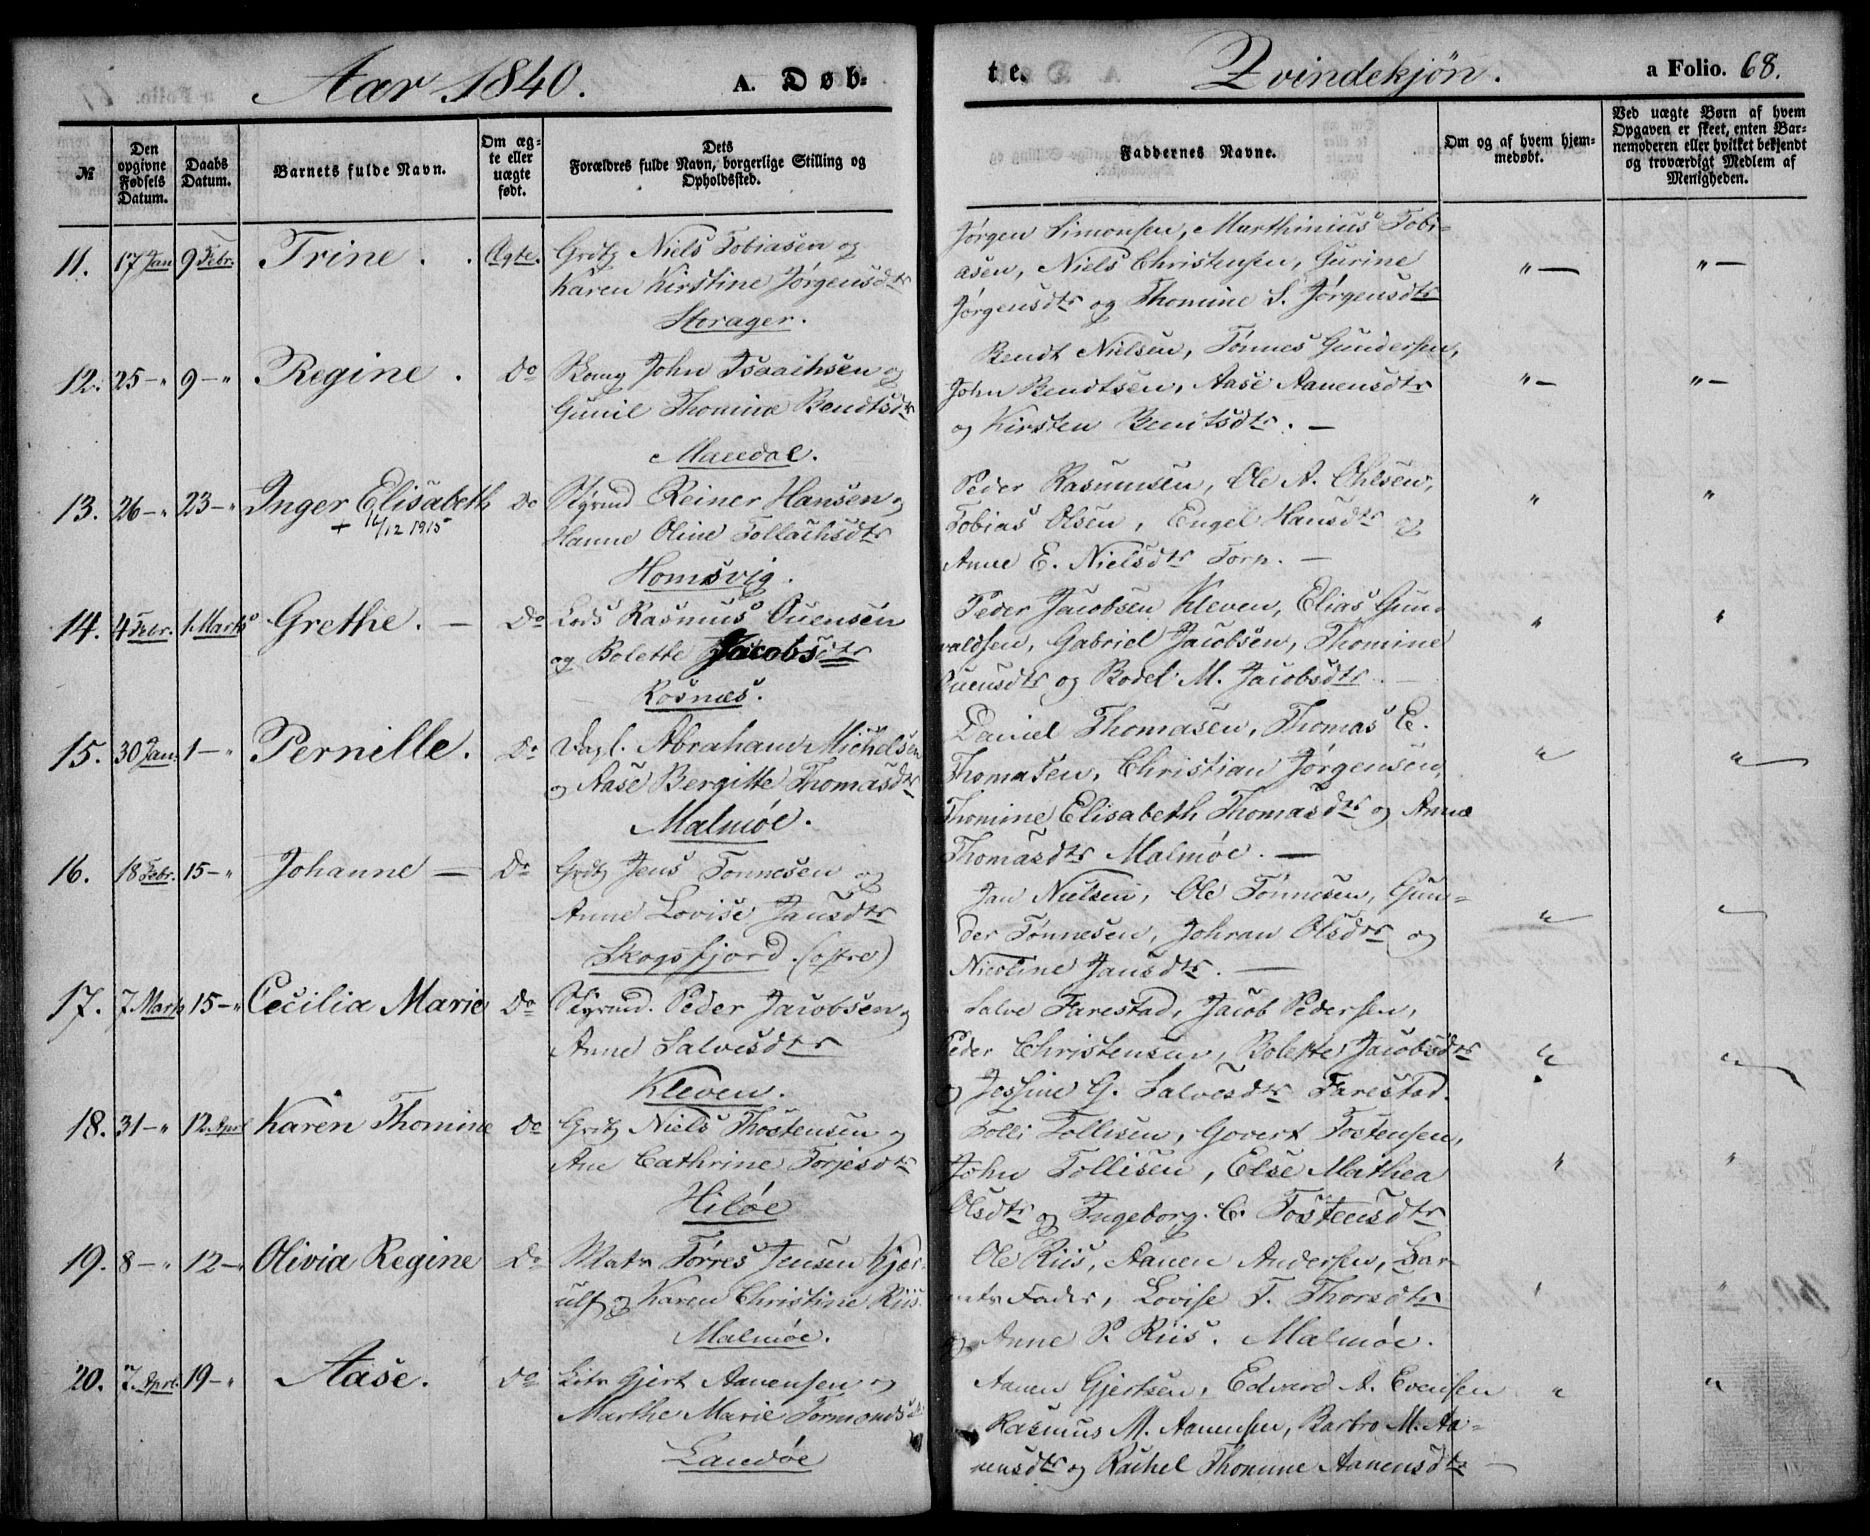 Aar 1840. A. Døb-
te. Qvindekjøn. a Folio. 68.
№
Den opgivne Fødsels Datum.
Daabs Datum.
Barnets fulde Navn.
Om ægte eller uægte født.
Dets Forældres fulde Navn, borgerlige Stilling og Opholdssted.
Faddernes Navne.
Om og af hvem hjemmedøbt.
Ved uægte Børn af hvem Opgaven er skeet, enten Barnemoderen eller hvilket bekjendt og troværdigt Medlem af Menigheden.
11. 17 Jan 9 Febr. Trine. Ægte. Grdb Niels Tobiasen og
Karen Kirstine Jørgensdtr
Storager.
Jørgen Simonsen, Marthinius Tobi-
asen, Niels Christensen, Gurine
Jørgensdtr og Thomine S. Jørgensdtr
" — " —
12. 25 — " 9 — " Regine. Do John Isaachsen og
Gunil Thomine Bendtsdtr
Mandal.
Bendt Nielsen, Tønnes Gundersen,
John Bendtsen, Aase Aanensdtr
og Kirsten Bentsdtr. —
" — " —
13. 26 — " 23 — " Inger Elisabeth Do Reiner Hansen og
+ 14/12 1915
Hanne Oline Tollachsdtr
Homsvig.
Peder Rasmusen, Ole A. Ohlsen,
Tobias Olsen, Engel Hansdtr og
Anne E. Nielsdtr Torp. —
" "
14. 4 Febr. 1. Marts Grethe. — Do Lods Rasmus Ouensen
og Bolette Jacobsdtr
Rosnæs.
Peder Jacobsen Kleven, Elias Gun-
valdsen, Gabriel Jacobsen, Thomine
Ouensdtr og Bodel M. Jacobsdtr. —
" "
15. 30 Jan. 1 — " Pernille. Do Dagl. Abraham Michelsen
og Aase Bergitte Thomasdtr
Malmøe.
Daniel Thomasen, Thomas E.
Thomasen, Christian Jørgensen,
Thomine Elisabeth Thomasdtr og Anne
Thomasdtr Malmøe. —
" "
16. 18 Febr. 15 — " Johanne — Do Grdb Jens Tønnesen og
Anne Lovise Jansdtr
Skogsfjord. (østre)
Jan Nielsen, Ole Tønnesen, Gun-
der Tønnesen, Johran Olsdtr og
Nicoline Jansdtr. —
" "
17. 7 Marts 15 — " Cecilia Marie Do Peder Jacobsen og
Anne Salvesdtr
Kleven.
Salve Farestad, Jacob Pedersen,
Peder Christensen, Bolette Jacobsdtr
og Jossine G. Salvesdtr Farestad.
" "
18. 31 — " 12. Aprl Karen Thomine Do Grdb Niels Thostensen og
Ane Cathrine Torjesdtr
Hiløe
Tolli Tollisen, Govert Tostensen,
John Tollisen, Else Mathea
Olsdtr og Ingeborg. C. Tostensdtr
" "
19. 8 — " 12 — Olivia Regine Do Matr Tørres Jensen Kjær-
ulf og Karen Christine Riis.
Malmøe.
Ole Riis, Aanen Andersen, Bar-
nets Fader, Lovise T. Thorsdtr
og Anne P. Riis. Malmøe.
" "
20. 7. Aprl. 19 — " Aase. Do Gjert Aanensen og
Marthe Marie Tormodsd
Landøe
Aanen Gjertsen, Edvard A. Evensen
Rasmus M. Aanensen, Barbro M. Aa-
nensdtr og Rachel Thomine Aanensdtr —
" "